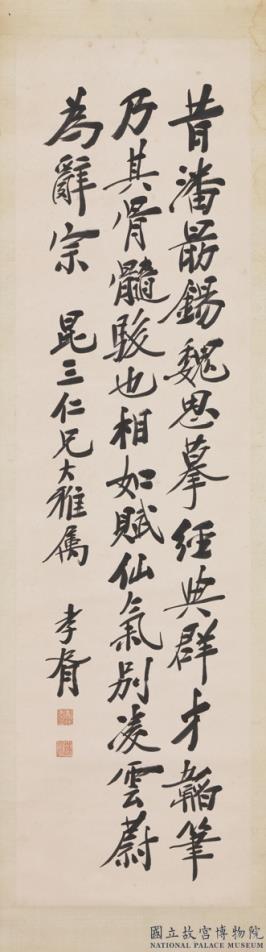 昔潘勗錫魏思摹經典群才韜筆
乃其骨髓駿也相如賦仙氣別凌雲蔚
為辭宗 昆三仁兄大雅属 孝胥
國立故宮博物院
NATIONAL PALACE MUSEUM